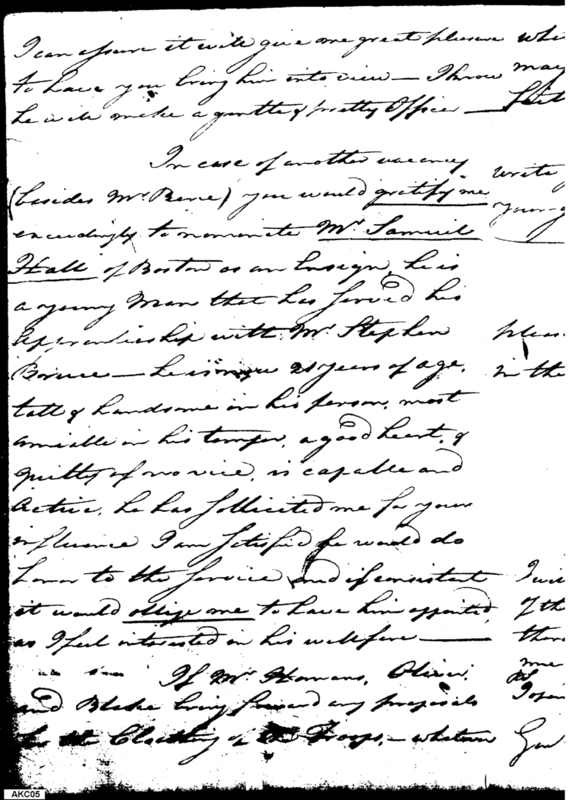 I can assure it will give me great pleasure
to have you bring him into view — I know
he will make a gentle & pretty Office —
In case of another vacancy
(besides Mr. ) you would gratify me
exceedingly to nominate Mr. Samuel
Hall of Boston as an Ensign, he is
a young Man that has served his
Apprenticeship with Mr. Stephen
Bruce — he is now 21 years of age,
tall & handsome in his person, most
amiable in his temper, a good heart, &
guilty of no vice, is capable and
Active, he has sollicited me for your
influence I am satisfied he would do
honor to the service and if consistent
it would oblige me to have him appointed,
as I feel interested in his wellfare —
If Mr. Oliver,
and Blake bring forward any proposals
for the Cloathing of the Troops, — whatever
whi
may
write
your
pleas
in the
I wi
of th
ther
me
AKC05